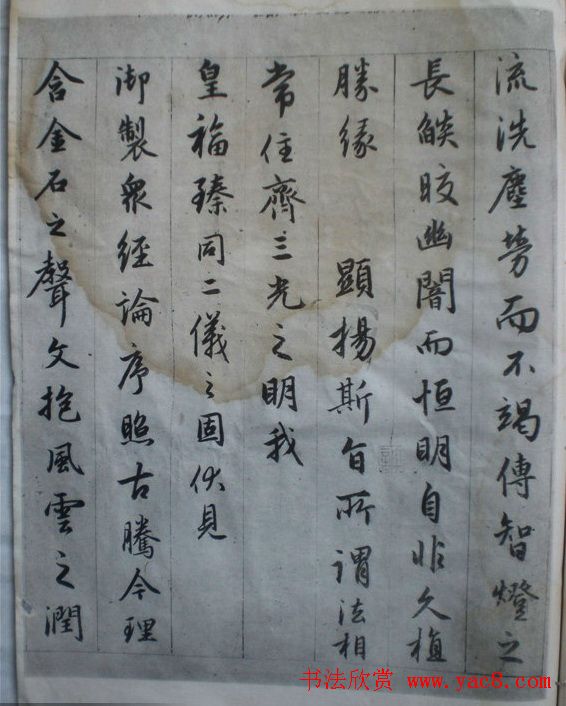 流洗塵勞而不竭傳智燈之
長燄皎幽闇而恒明自非久植
勝緣　顯揚斯旨所謂法相
常住齊三光之明我
皇福臻同二儀之固伏見
御製眾經論序照古騰今理
含金石之聲文抱風雲之潤
书法欣赏 www.yac8.com